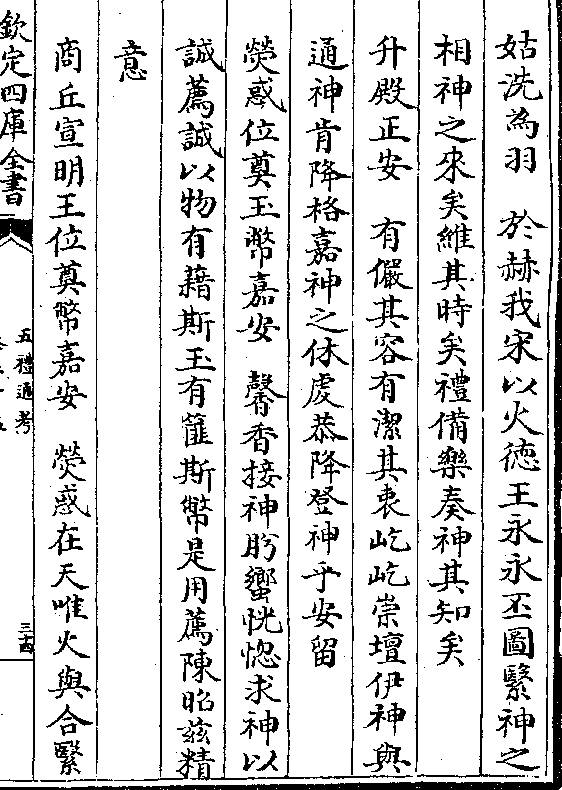 姑洗為羽　於赫我宋以火徳王永永丕圖繄神之
相神之來矣維其時矣禮備樂奏神其知矣
升殿正安　有儼其容有潔其衷屹屹崇壇伊神與
通神肯降格嘉神之休虔恭降登神乎安留
熒惑位奠玉幣嘉安　馨香接神肹蠁恍惚求神以
誠薦誠以物有藉斯玉有篚斯幣是用薦陳昭兹精
意
商丘宣明王位奠幣嘉安　熒惑在天唯火與合繄
欽定四庫全書
五禮通考
三十四